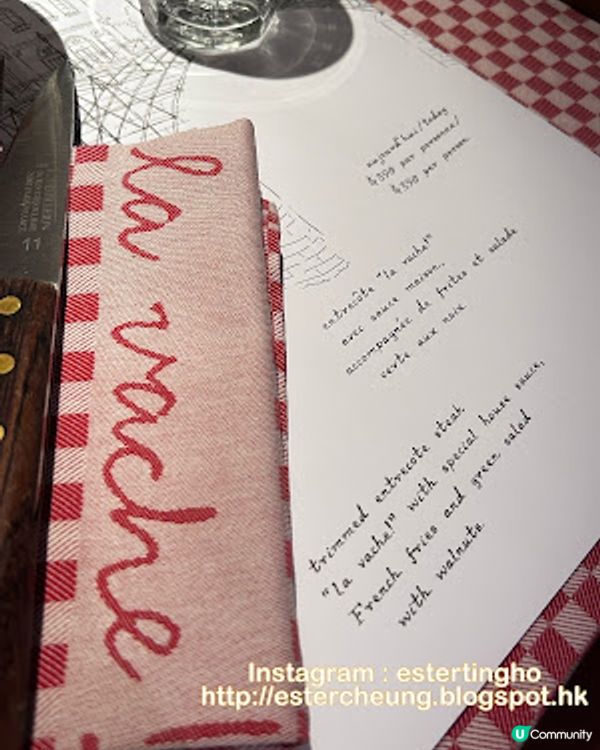 la vache!
11
aujourd'hui/today
$398 per personne/
$398 per person
entrecôte "la vache!"
avec sauce maison,
accompagnée de frites et salade
verte aux noix
trimmed entrecote steak
"la vache!" with special house sauce,
French fries and green salad
with walnuts
Instagram : estertingho
http://estercheung.blogspot.hk
U Community